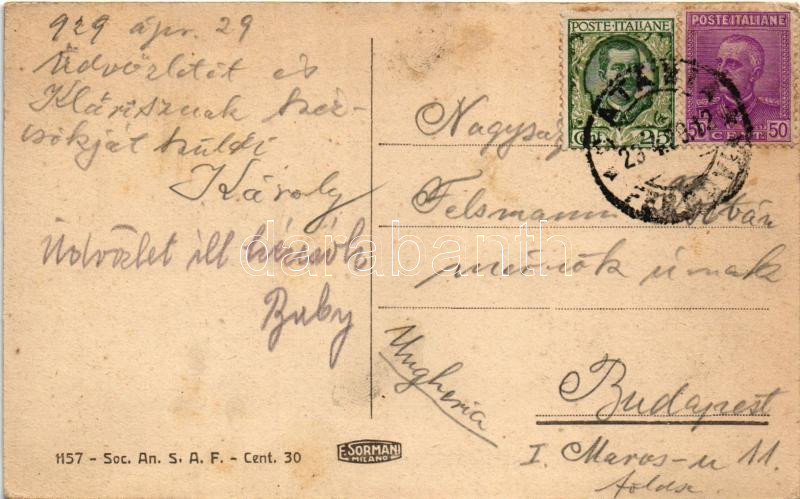 929 ápr. 29
Üdvözletét és
Klárisznak kéz-
csókját küldi
Károly
Üdvözlet ill kézcsók
Baby
1157 - Soc. An. S. A. F. - Cent. 30
E. SORMANI
MILANO
POSTE·ITALIANE
CENT 25
POSTE ITALIANE
50 CENT. 50
Nagyság
Felsmann István
mérnök úrnak
Ungheria
Budapest
I. Maros-u 11.
földsz
darabanth